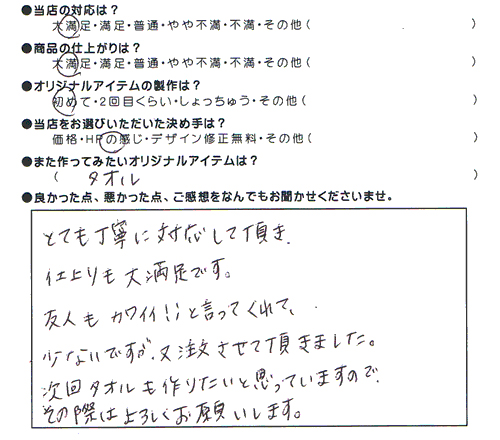 ●当店の対応は？
大満足・満足・普通・やや不満・不満・その他(　　　)
●商品の仕上がりは？
大満足・満足・普通・やや不満・不満・その他(　　　)
●オリジナルアイテムの製作は？
初めて・2回目くらい・しょっちゅう・その他(　　　)
●当店をお選びいただいた決め手は？
価格・HPの感じ・デザイン修正無料・その他(　　　)
●また作ってみたいオリジナルアイテムは？
(　タオル　)
●良かった点、悪かった点、ご感想をなんでもお聞かせくださいませ。
とても丁寧に対応して頂き、
仕上りも大満足です。
友人もカワイイ!!と言ってくれて、
少ないですが、又注文させて頂きました。
次回タオルも作りたいと思っていますので、
その際はよろしくお願いします。